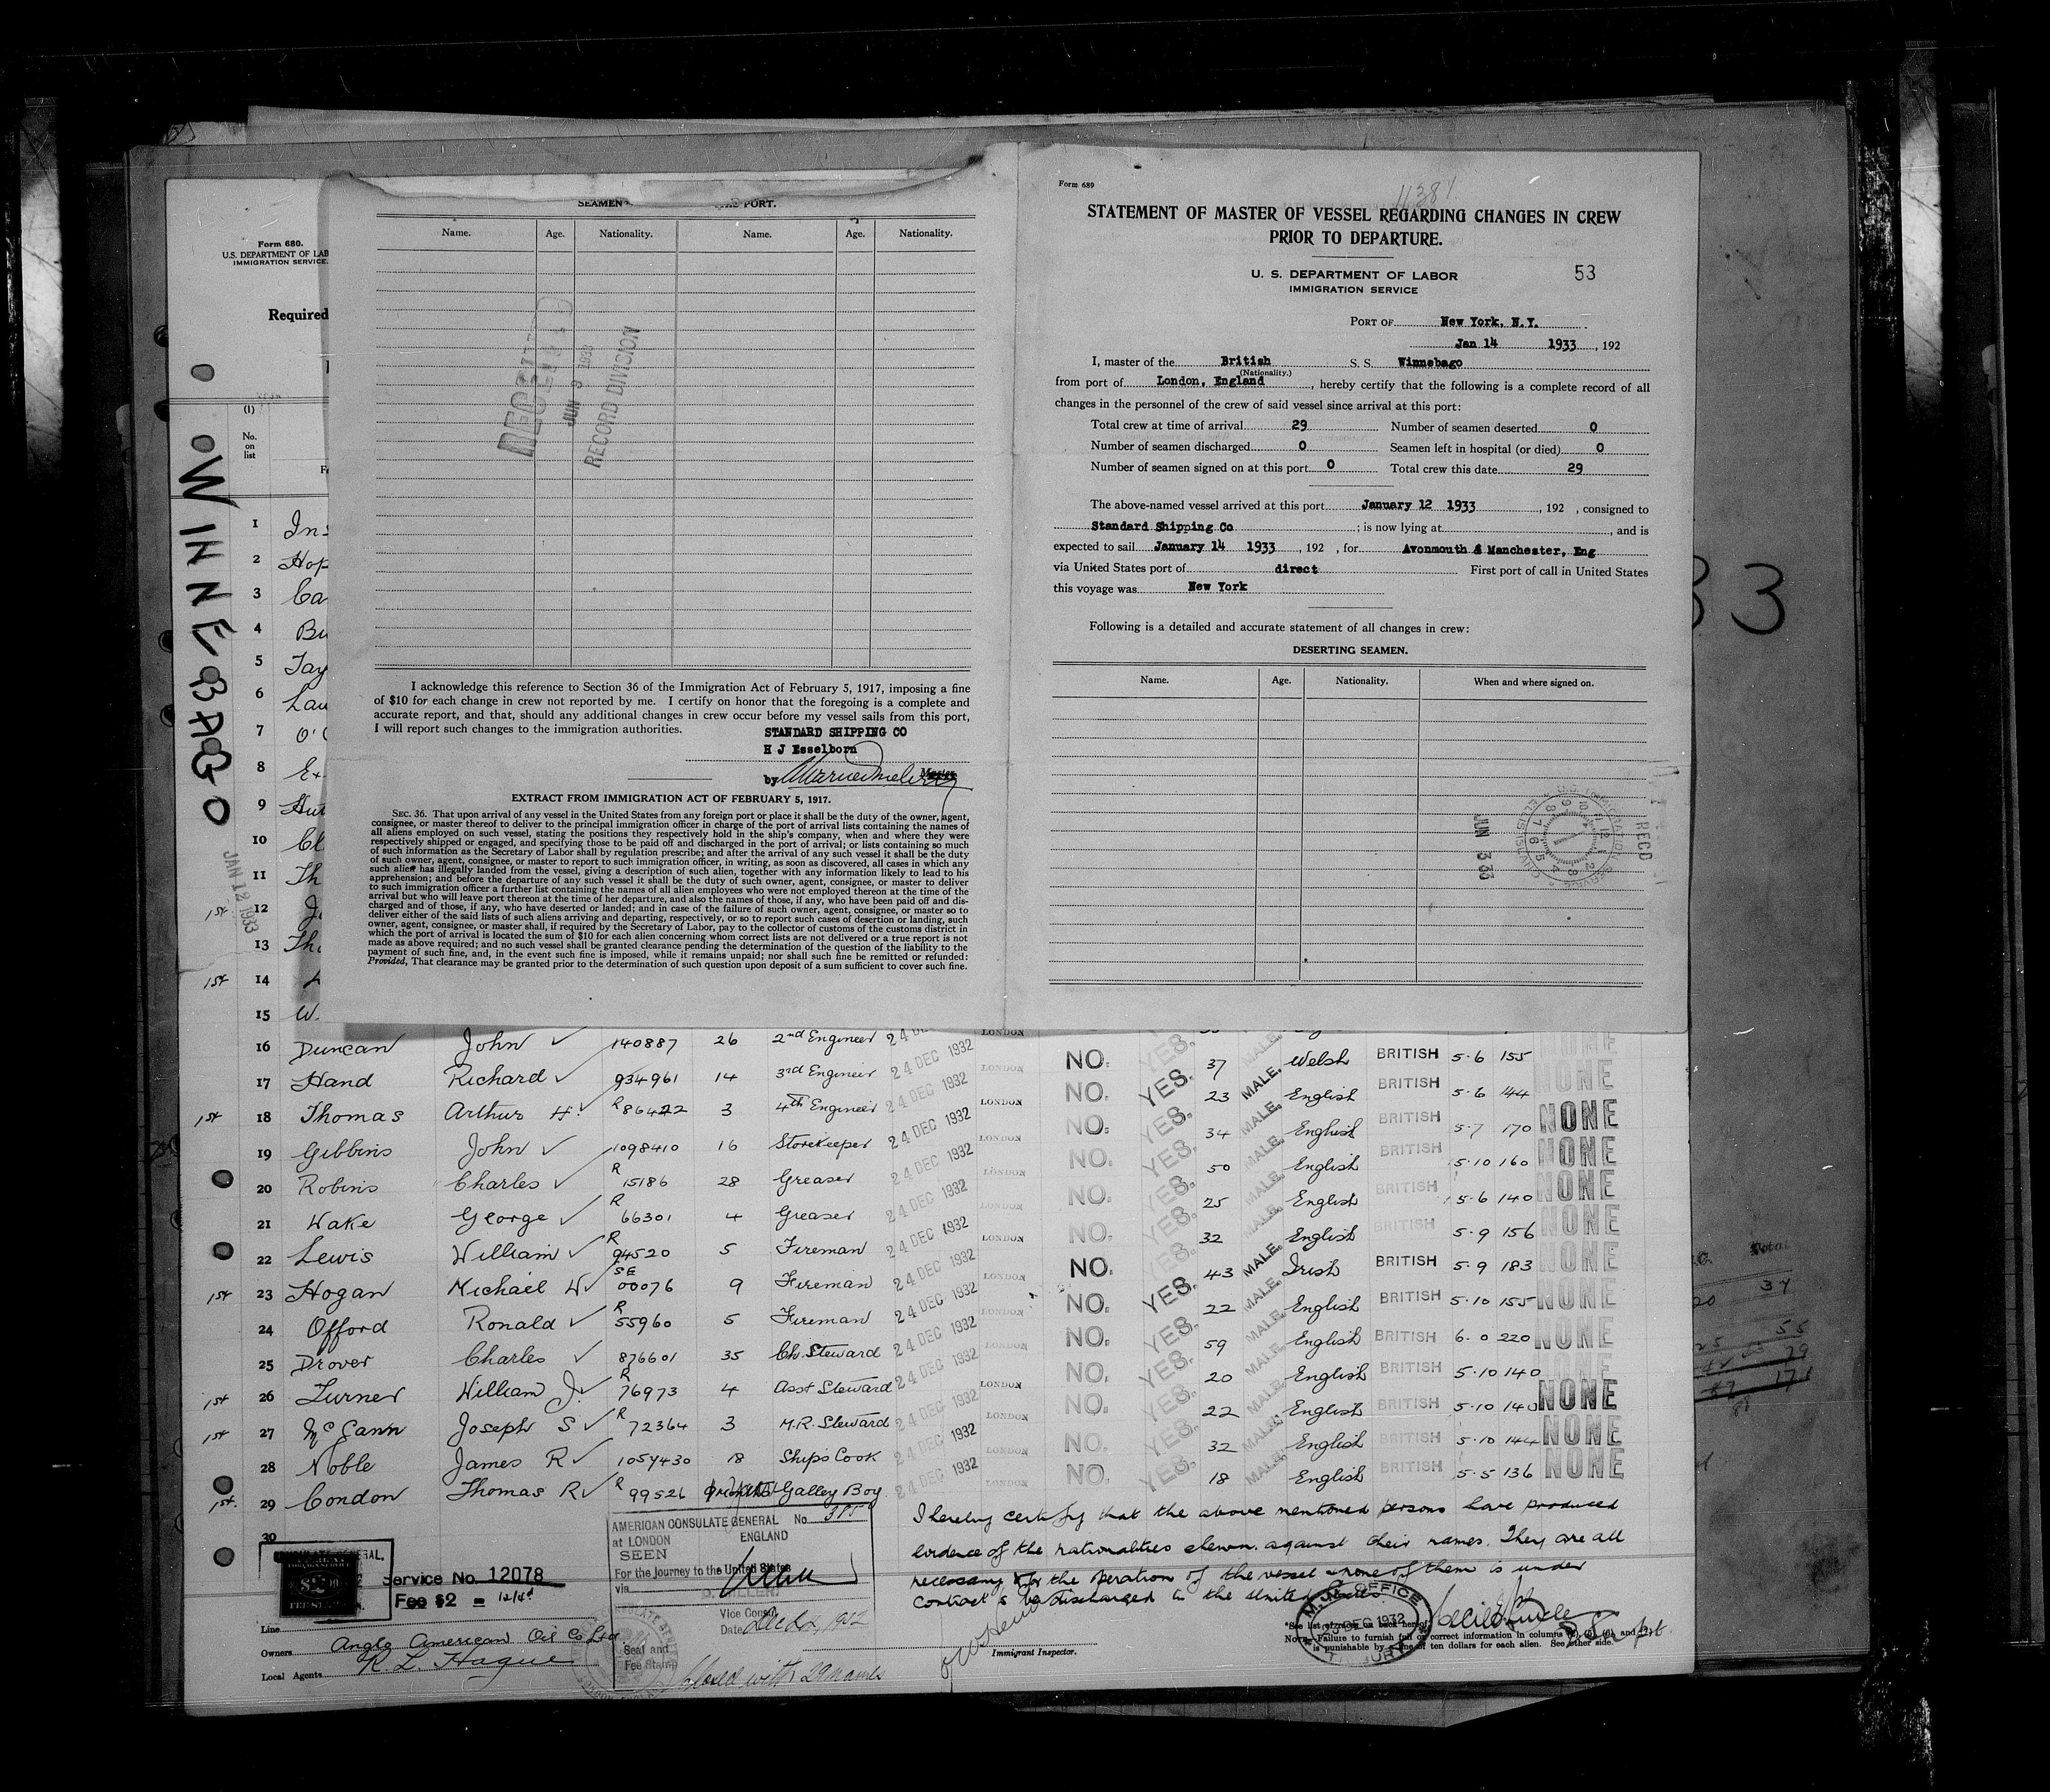 Form 680.
U.S. DEPARTMENT OF LAB
IMMIGRATION SERVICE.
Required
(1)
No.
on
list
WINNEBAGO
JAN 12 1933
1 Ins
2 Hop
3 Ca
4 Bu
5 Tay
6 Law
7 O'
8 Ex
9 Hut
10 Cl
11 Th
1st 12 J
13 Tho
1st 14
15 W.
SEAMEN PORT.
Name. Age. Nationality. Name. Age. Nationality.
RECEIVED
JUN 3 1933
RECORD DIVISION
I acknowledge this reference to Section 36 of the Immigration Act of February 5, 1917, imposing a fine
of $10 for each change in crew not reported by me. I certify on honor that the foregoing is a complete and
accurate report, and that, should any additional changes in crew occur before my vessel sails from this port,
I will report such changes to the immigration authorities.
STANDARD SHIPPING CO
H J Esselborn
by Master
EXTRACT FROM IMMIGRATION ACT OF FEBRUARY 5, 1917.
SEC. 36. That upon arrival of any vessel in the United States from any foreign port or place it shall be the duty of the owner, agent,
consignee, or master thereof to deliver to the principal immigration officer in charge of the port of arrival lists containing the names of
all aliens employed on such vessel, stating the positions they respectively hold in the ship's company, when and where they were
respectively shipped or engaged, and specifying those to be paid off and discharged in the port of arrival; or lists containing so much
of such information as the Secretary of Labor shall by regulation prescribe; and after the arrival of any such vessel it shall be the duty
of such owner, agent, consignee, or master to report to such immigration officer, in writing, as soon as discovered, all cases in which any
such alien has illegally landed from the vessel, giving a description of such alien, together with any information likely to lead to his
apprehension; and before the departure of any such vessel it shall be the duty of such owner, agent, consignee, or master to deliver
to such immigration officer a further list containing the names of all alien employees who were not employed thereon at the time of the
arrival but who will leave port thereon at the time of her departure, and also the names of those, if any, who have been paid off and dis-
charged and of those, if any, who have deserted or landed; and in case of the failure of such owner, agent, consignee, or master so to
deliver either of the said lists of such aliens arriving and departing, respectively, or so to report such cases of desertion or landing, such
owner, agent, consignee, or master shall, if required by the Secretary of Labor, pay to the collector of customs of the customs district in
which the port of arrival is located the sum of $10 for each alien concerning whom correct lists are not delivered or a true report is not
made as above required; and no such vessel shall be granted clearance pending the determination of the question of the liability to the
payment of such fine, and, in the event such fine is imposed, while it remains unpaid; nor shall such fine be remitted or refunded:
Provided, That clearance may be granted prior to the determination of such question upon deposit of a sum sufficient to cover such fine.
Form 689
11381
STATEMENT OF MASTER OF VESSEL REGARDING CHANGES IN CREW
PRIOR TO DEPARTURE.
U. S. DEPARTMENT OF LABOR
IMMIGRATION SERVICE
53
PORT OF New York, N.Y.
Jan 14 1933, 192
I, master of the British S. S. Winnebago
(Nationality.)
from port of London, England, hereby certify that the following is a complete record of all
changes in the personnel of the crew of said vessel since arrival at this port:
Total crew at time of arrival 29 Number of seamen deserted 0
Number of seamen discharged 0 Seamen left in hospital (or died) 0
Number of seamen signed on at this port 0 Total crew this date 29
The above-named vessel arrived at this port January 12 1933, 192 , consigned to
Standard Shipping Co ; is now lying at , and is
expected to sail January 14 1933, 192 , for Avonmouth & Manchester, Eng
via United States port of direct First port of call in United States
this voyage was New York
Following is a detailed and accurate statement of all changes in crew:
DESERTING SEAMEN.
Name. Age. Nationality. When and where signed on.
RECD
JUN 3 33
33
16 Duncan John 140887 26 2nd Engineer 24 DEC 1932 LONDON NO. YES. 37 MALE. Welsh BRITISH 5.6 155 NONE
17 Hand Richard 934961 14 3rd Engineer 24 DEC 1932 LONDON NO. YES. 23 MALE. English BRITISH 5.6 144 NONE
1st 18 Thomas Arthur H. R 86422 3 4th Engineer 24 DEC 1932 LONDON NO. YES. 34 MALE. English BRITISH 5.7 170 NONE
19 Gibbins John 1098410 16 Storekeeper 24 DEC 1932 LONDON NO. YES. 50 MALE. English BRITISH 5.10 160 NONE
20 Robins Charles R 15186 28 Greaser 24 DEC 1932 LONDON NO. YES. 25 MALE. English BRITISH 5.6 140 NONE
21 Wake George R 66301 4 Greaser 24 DEC 1932 LONDON NO. YES. 32 MALE. English BRITISH 5.9 156 NONE
22 Lewis William R 94520 5 Fireman 24 DEC 1932 LONDON NO. YES. 43 MALE. Irish BRITISH 5.9 183 NONE
1st 23 Hogan Michael W SE 00076 9 Fireman 24 DEC 1932 LONDON NO. YES. 22 MALE. English BRITISH 5.10 155 NONE
24 Offord Ronald R 55960 5 Fireman 24 DEC 1932 LONDON NO. YES. 59 MALE. English BRITISH 6.0 220 NONE
25 Drover Charles 876601 35 Ch. Steward 24 DEC 1932 LONDON NO. YES. 20 MALE. English BRITISH 5.10 140 NONE
1st 26 Turner William J. R 76973 4 Asst Steward 24 DEC 1932 LONDON NO. YES. 22 MALE. English BRITISH 5.10 140 NONE
1st 27 McCann Joseph S R 72364 3 M.R. Steward 24 DEC 1932 LONDON NO. YES. 32 MALE. English BRITISH 5.10 144 NONE
28 Noble James R 1057430 18 Ships Cook 24 DEC 1932 LONDON NO. YES. 18 MALE. English BRITISH 5.5 136 NONE
1st. 29 Condon Thomas R R 99526 Galley Boy 24 DEC 1932 LONDON
30
AMERICAN CONSULATE GENERAL No.
at LONDON ENGLAND
SEEN
For the Journey to the United States
via
Vice Consul
Date
Seal and
Fee Stamp
Closed with 29 names
Service No. 12078
Fee $2 =
Line
Owners Anglo American Oil Co Ltd
Local Agents R. L. Hague
I hereby certify that the above mentioned persons have produced
evidence of the nationalities shewn against their names. They are all
necessary for the operation of the vessel & none of them is under
contract to be discharged in the United States.
M.M. OFFICE
DEC 1932
TILBURY
Immigrant Inspector.
*See list of races on back hereof.
NOTE.—Failure to furnish full or correct information in columns and
is punishable by a fine of ten dollars for each alien. See other side.